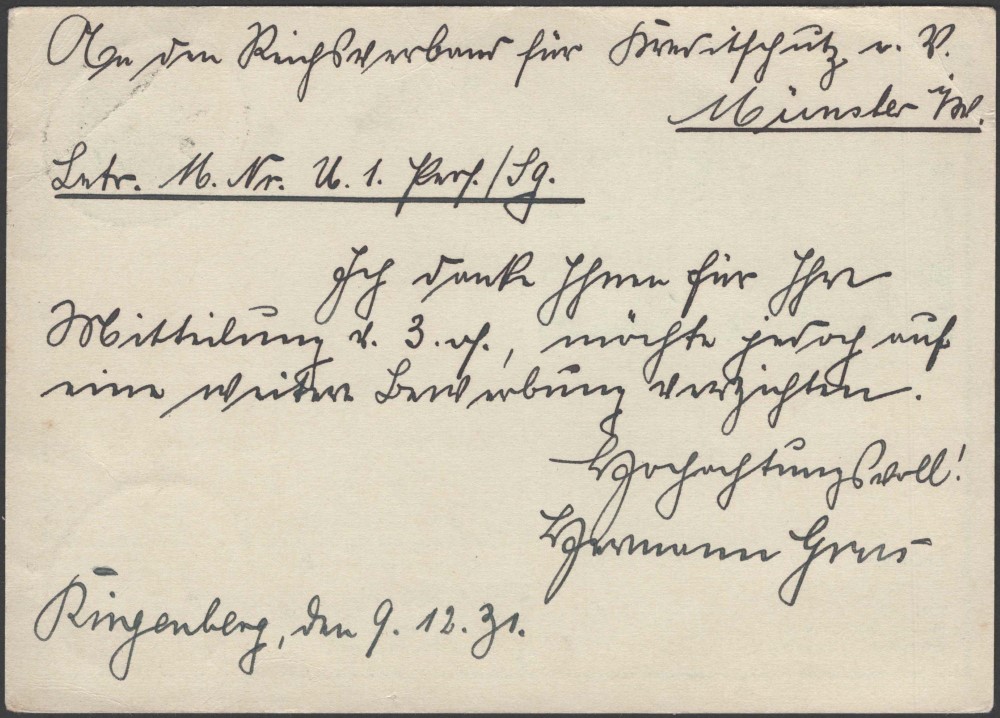 An den Reichsverband für Kreditschutz e. V.
Münster i/W.
Betr. M. Nr. U. 1. Pers./Sg.
Ich danke Ihnen für Ihre
Mitteilung v. 3. ds., möchte jedoch auf
eine weitere Bewerbung verzichten.
Hochachtungsvoll!
Hermann
Ringenberg, den 9. 12. 31.